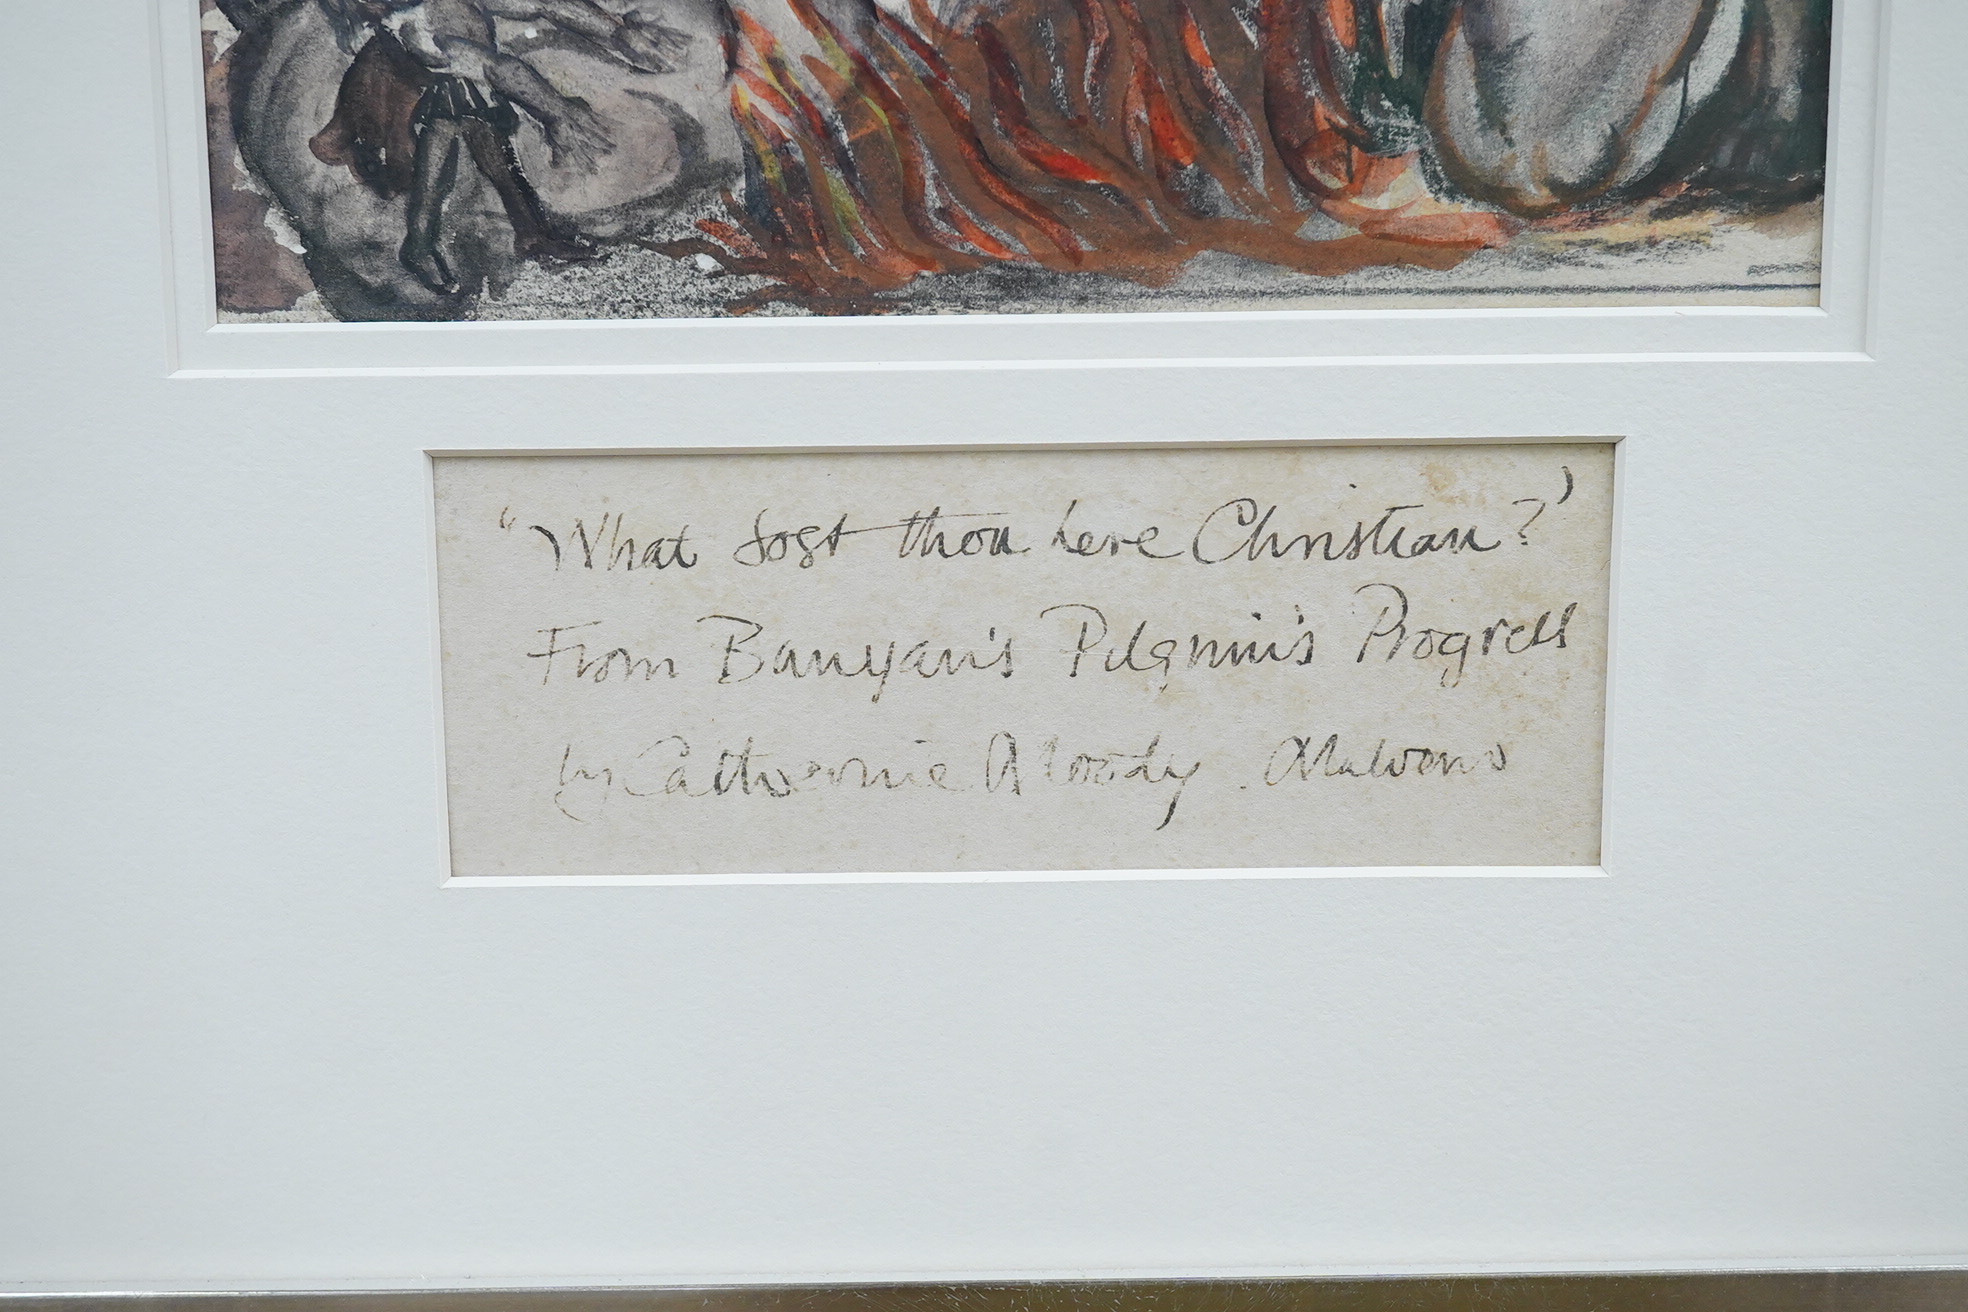 "What dost thou here Christian?'
From Banyan's Pilgrim's Progress
by Catherine Moody. Malvern